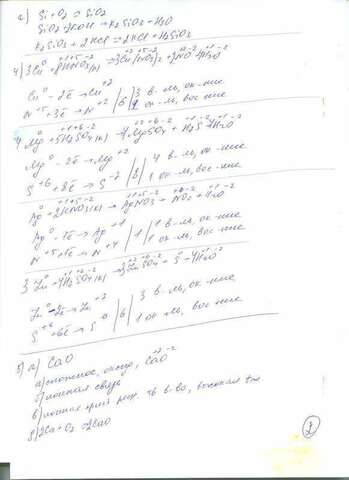 с) Si + O₂ = SiO₂
SiO₂ + 2KOH → K₂SiO₃ + H₂O
K₂SiO₃ + 2HCl = 2KCl + H₂SiO₃
4) 3Cu⁰ + 8HNO₃(к) → 3Cu(NO₃)₂ + 2NO + 4H₂O
Cu⁰ - 2ē → Cu⁺² 3 в-ль, ок-ние
N⁺⁵ + 3ē → N⁺² |6| 2 ок-ль, вос-ние
4Mg⁰ + 5H₂SO₄(к) → 4MgSO₄ + H₂S + 4H₂O
Mg⁰ - 2ē → Mg⁺² 4 в-ль, ок-ние
S⁺⁶ + 8ē → S⁻² |8| 1 ок-ль, вос-ние
Ag⁰ + 2HNO₃(к) → AgNO₃ + NO₂ + H₂O
Ag⁰ - 1ē → Ag⁺¹ 1 в-ль, ок-ние
N⁺⁵ + 1ē → N⁺⁴ |1| 1 ок-ль, вос-ние
3Zn⁰ + 4H₂SO₄(к) → 3ZnSO₄ + S + 4H₂O
Zn⁰ - 2ē → Zn⁺² 3 в-ль, ок-ние
S⁺⁶ + 6ē → S⁰ |6| 1 ок-ль, вос-ние
5) а) CaO
а) сложное, оксид, Ca⁺²O⁻²
б) ионная связь
в) ионная крист. реш. тв. в-во, высокая
2Ca + O₂ = 2CaO